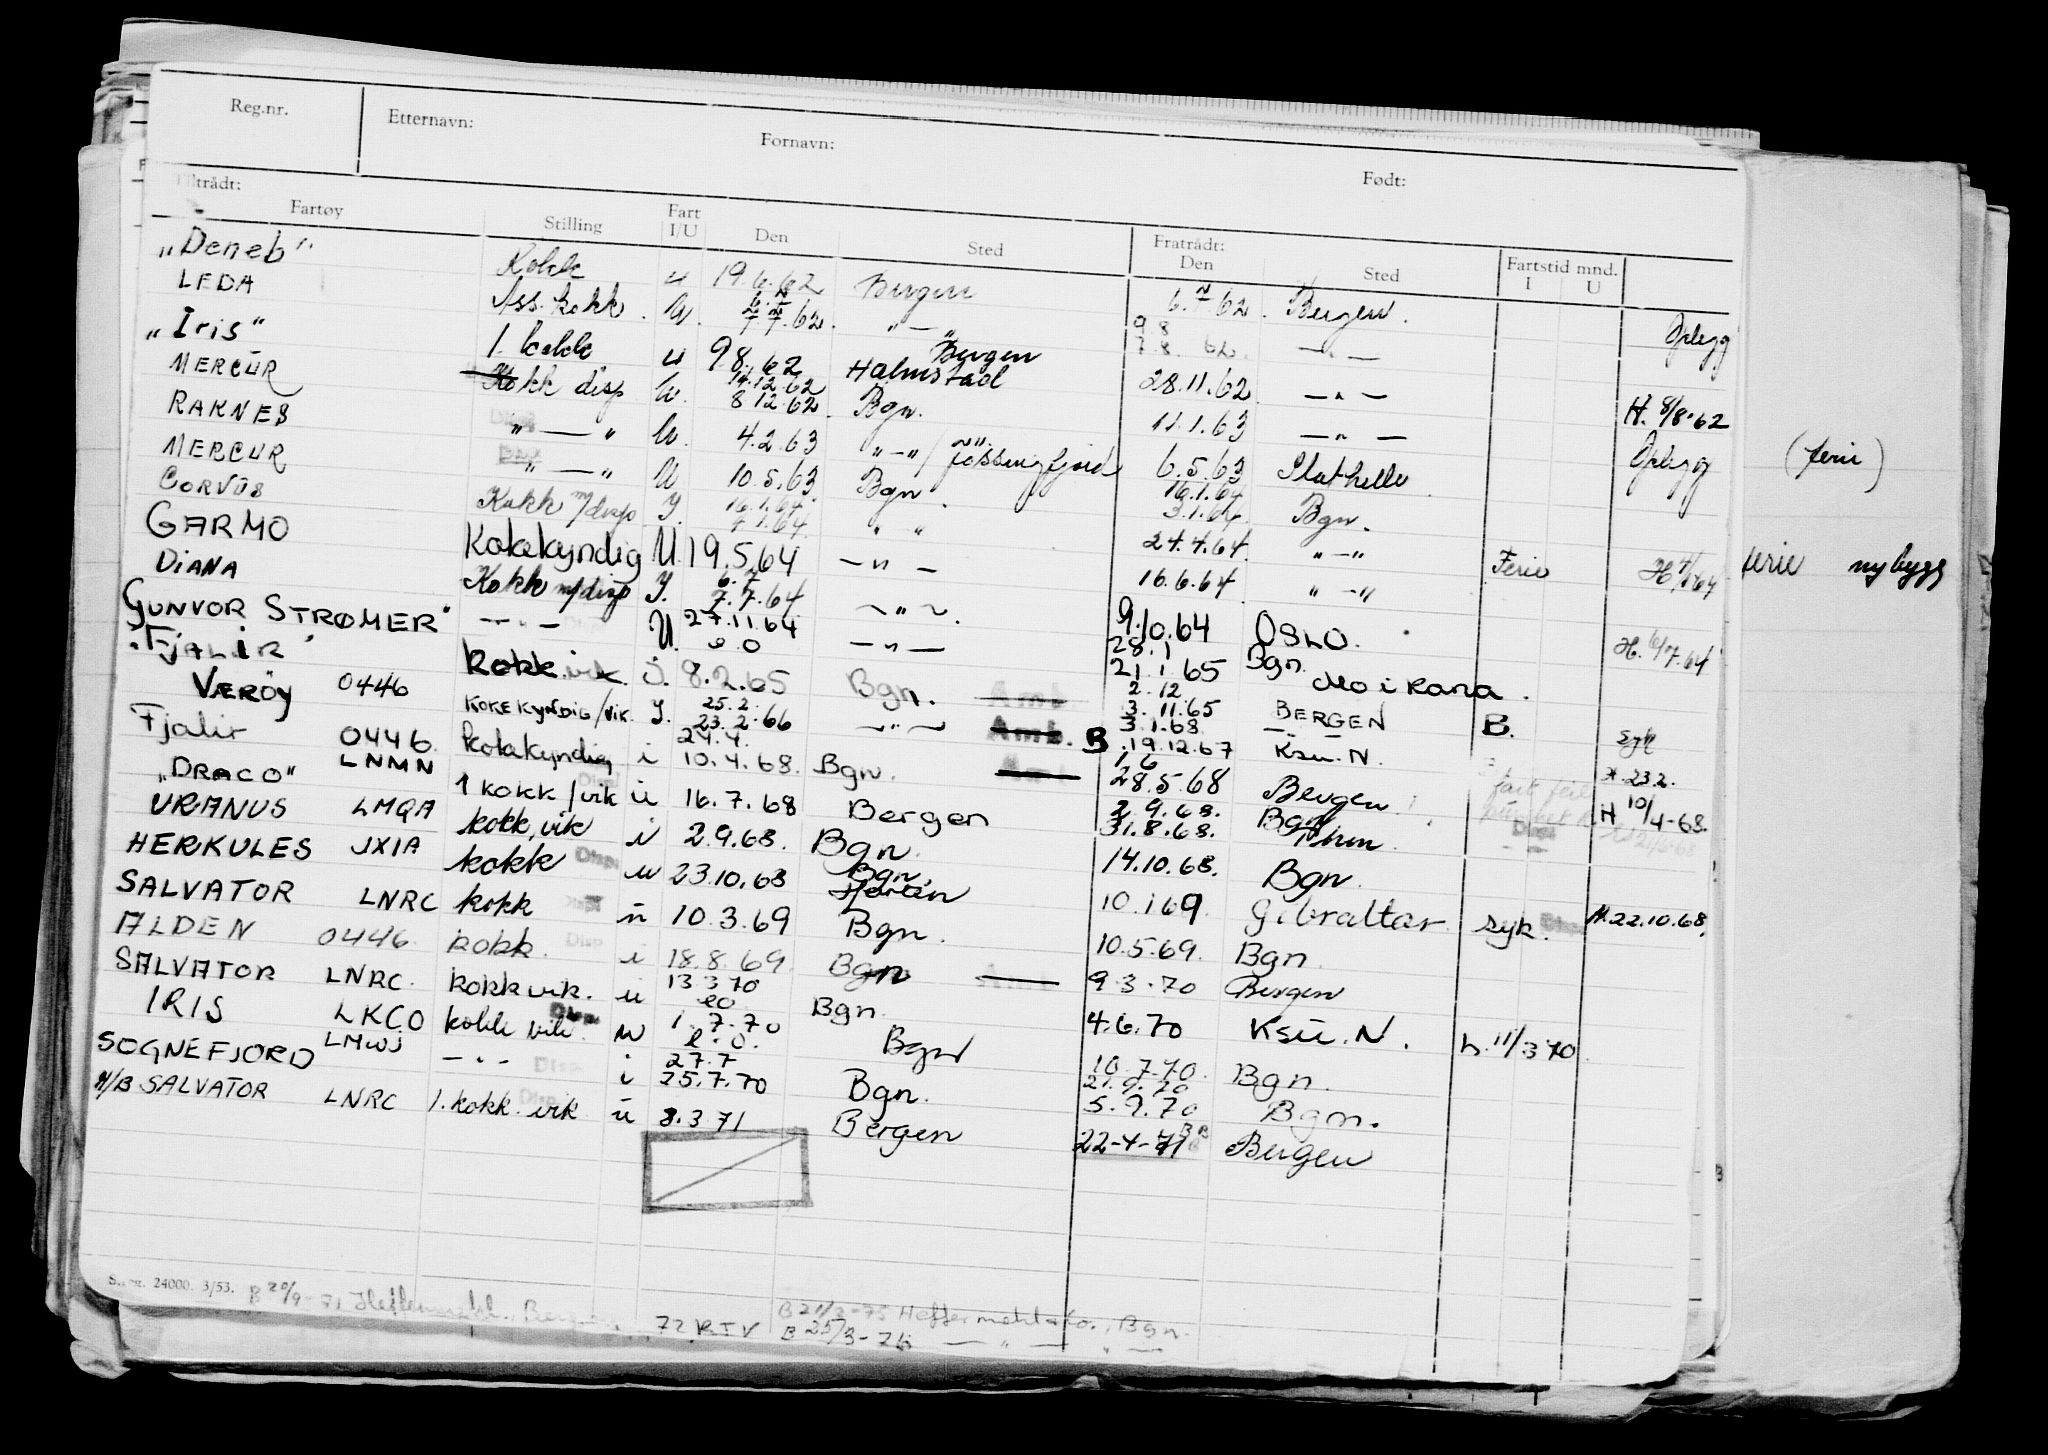 Reg.nr. Etternavn: Fornavn: Født:
Tiltrådt: Fratrådt:
Fartøy Stilling Fart I/U Den Sted Den Sted Fartstid mnd. I U
"Deneb" Kokk u 19.6.62 Bergen 6.7.62 Bergen. Oplegg
LEDA Ass. kokk. u. 7.7.62. " — " 9 8 7.8. 62. — " —
"Iris" 1. kokk u 9.8.62 Bergen Halmstad 28.11.62 — " — H. 8/8-62
MERCUR Kokk disp u. 14.12.62 8 12.62 Bgn. 11.1.63 — " — Oplegg (ferie)
RAKNES " — " u. 4.2.63 " — " / Jössingfjord 6.5.63 Stathelle
MERCUR " — " u 10.5.63 Bgn. 16.1.64 3.1.64 Bgn.
CORVUS Kokk m/disp I. 16.1.64 4.1.64 " " 24.4.64 " — " Ferie H 4/1-64 ferie nybygg
GARMO Kokekyndig U. 19.5.64 — " — 16.6.64 " — "
DIANA Kokk m/disp I. 6.7 7.7.64 — " — 9.10.64 OSLO. H. 6/7.64
GUNVOR STRØMER" — " — U. 27.11.64 e o — " — 28.1 21.1.65 Bgn. Mo i Rana.
"FJALIR" kokk.vik. i. 8.2.65 Bgn. Amb 2.12 3.11.65 BERGEN B. syk
VÆRÖY 0446 KOKEKYNDIG/vik. I. 25.2. 23.2.66 — " — Amb. B 3.1.68 19.12.67 Ksu. N. H. 23.2.
Fjalir 0446 kokekyndig i 24.4. 10.4.68. Bgn. 1.6 28.5.68 Bergen H 10/4-68.
"DRACO" LNMN 1 kokk/vik u 16.7.68 Bergen 2.9.68. 31.8.68. Bgn
URANUS LMQA kokk, vik i 2.9.68. Bgn. 14.10.68. Bgn.
HERKULES JXIA kokk Disp. u 23.10.68 Bgn. Horten 10.1 69 Gibraltar syk. H. 22.10.68.
SALVATOR LNRC kokk Disp u 10.3.69 Bgn. 10.5.69. Bgn.
ALDEN 0446 kokk. Disp i 18.8.69 Bgn 9.3.70 Bergen
SALVATOR LNRC. kokk vik. u 13 3 70 eo Bgn. 4.6.70 Ksu. N. h. 11/3 70
IRIS LKCO kokk vik. Disp. u 1.7.70 e.o. Bgn 10.7.70. Bgn.
SOGNEFJORD LMWJ — " — Disp i 27.7 25.7.70 Bgn. 21.9.70 5.9.70 Bgn.
H/B SALVATOR LNRC 1. kokk. vik u 8.3 71 Bergen 22-4-71 Bergen
24000. 3/53. B 20/9-71 Bergen 72 RTV B 21/3-75 Heftermehl&Co., Bgn.
B 25/3-76 — " — " —